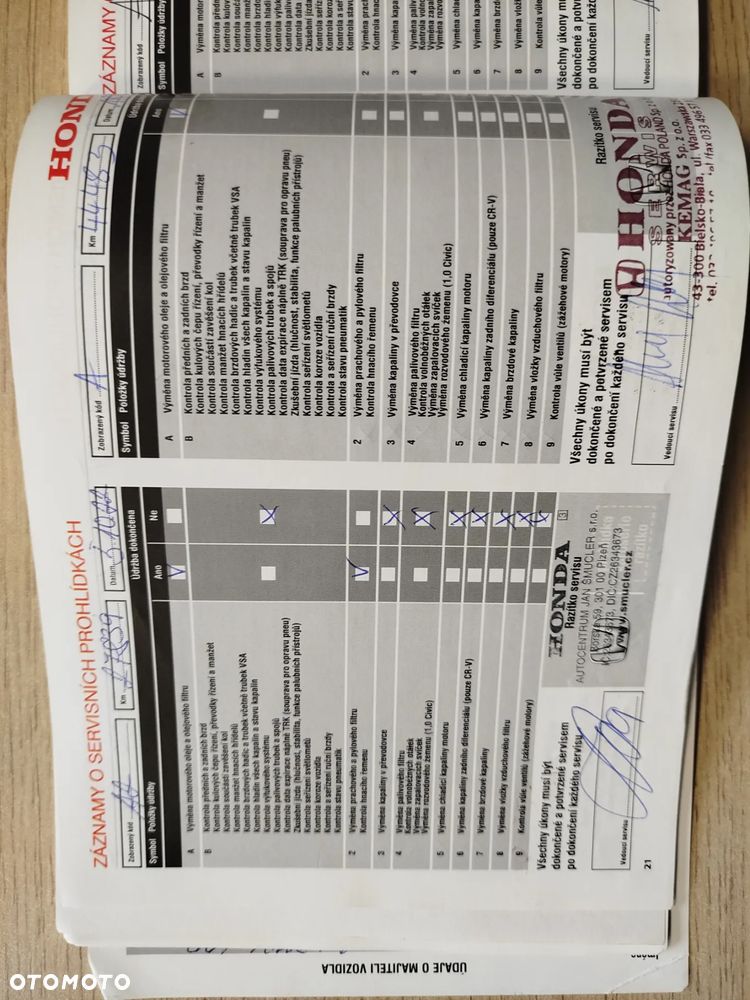 ZÁZNAMY O SERVISNÍCH PROHLÍDKÁCH
Zobrazený kód
Km
Datum
Symbol Položky údržby
Údržba dokončena
Ano Ne
A Výměna motorového oleje a olejového filtru
B Kontrola předních a zadních brzd
Kontrola kulových čepu řízení, převodky řízení a manžet
Kontrola součástí zavěšení kol
Kontrola manžet hnacích hřídelů
Kontrola brzdových hadic a trubek včetně trubek VSA
Kontrola hladin všech kapalin a stavu kapalin
Kontrola výfukového systému
Kontrola palivových trubek a spojů
Kontrola data expirace náplně TRK (souprava pro opravu pneu)
Zkušební jízda (hlučnost, stabilita, funkce palubních přístrojů)
Kontrola seřízení světlometů
Kontrola koroze vozidla
Kontrola a seřízení ruční brzdy
Kontrola stavu pneumatik
2 Výměna prachového a pylového filtru
Kontrola hnacího řemenu
3 Výměna kapaliny v převodovce
4 Výměna palivového filtru
Kontrola volnoběžných otáček
Výměna zapalovacích svíček
Výměna rozvodového řemenu (1,0 Civic)
5 Výměna chladicí kapaliny motoru
6 Výměna kapaliny zadního diferenciálu (pouze CR-V)
7 Výměna brzdové kapaliny
8 Výměna vložky vzduchového filtru
9 Kontrola vůle ventilů (zážehové motory)
Všechny úkony musí být
dokončené a potvrzené servisem
po dokončení každého servisu
Vedoucí servisu
HONDA
Razítko servisu
[3]
AUTOCENTRUM JAN ŠMUCLER s.r.o.
59, 301 00 Plzeň
DIČ:CZ26343673
www.smucler.cz
21
HONDA
Zobrazený kód A
Km 44483
Symbol Položky údržby
Ano
A Výměna motorového oleje a olejového filtru
B Kontrola předních a zadních brzd
Kontrola kulových čepu řízení, převodky řízení a manžet
Kontrola součástí zavěšení kol
Kontrola manžet hnacích hřídelů
Kontrola brzdových hadic a trubek včetně trubek VSA
Kontrola hladin všech kapalin a stavu kapalin
Kontrola výfukového systému
Kontrola palivových trubek a spojů
Kontrola data expirace náplně TRK (souprava pro opravu pneu)
Zkušební jízda (hlučnost, stabilita, funkce palubních přístrojů)
Kontrola seřízení světlometů
Kontrola koroze vozidla
Kontrola a seřízení ruční brzdy
Kontrola stavu pneumatik
2 Výměna prachového a pylového filtru
Kontrola hnacího řemenu
3 Výměna kapaliny v převodovce
4 Výměna palivového filtru
Kontrola volnoběžných otáček
Výměna zapalovacích svíček
Výměna rozvodového řemenu (1,0 Civic)
5 Výměna chladicí kapaliny motoru
6 Výměna kapaliny zadního diferenciálu (pouze CR-V)
7 Výměna brzdové kapaliny
8 Výměna vložky vzduchového filtru
9 Kontrola vůle ventilů (zážehové motory)
Všechny úkony musí být
dokončené a potvrzené servisem
po dokončení každého servisu
Vedoucí servisu
Razítko servisu
HONDA
SERWIS
autoryzowany przez HONDA POLAND
KEMAG Sp. z o.o.
43-300 Bielsko-Biała, ul. Warszawska
ZÁZNAMY
Zobrazený kód
Symbol Položky údržby
Všechny úkony musí být
dokončené a potvrzené
po dokončení každého
Vedoucí servisu
ÚDAJE O MAJITELI VOZIDLA
Jméno
OTOMOTO